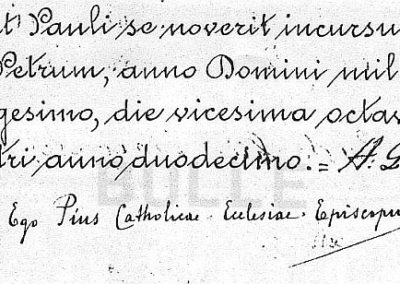 t' Pauli se noverit incursu
Petrum, anno Domini mil
gesimo, die vicesima octav
tri anno duodecimo.=
Ego Pius Catholicae Ecclesiae Episcopu
BULLE